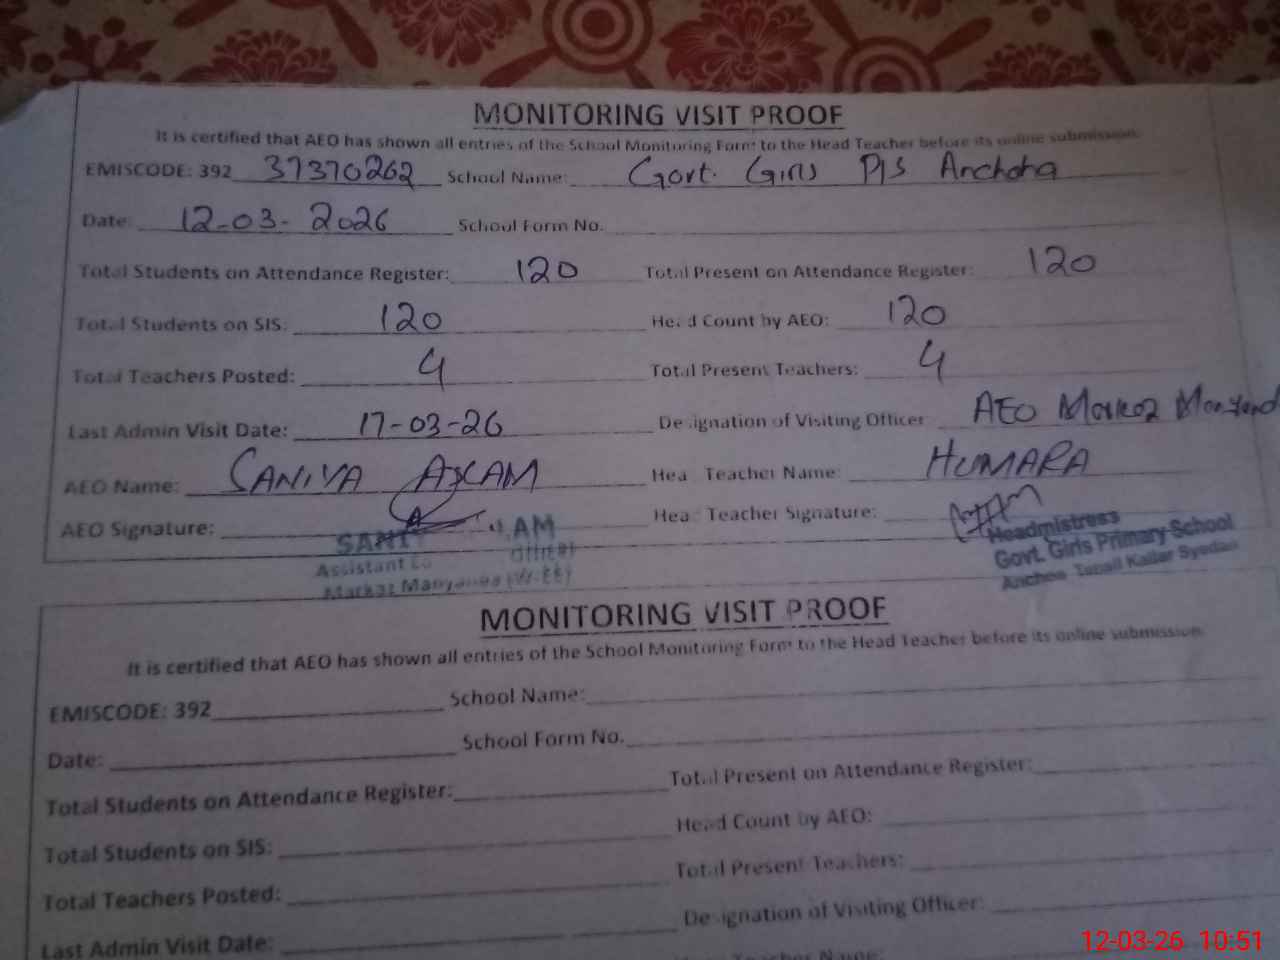 MONITORING VISIT PROOF
It is certified that AEO has shown all entries of the School Monitoring Form to the Head Teacher before its online submission.
EMISCODE: 392 37370262 School Name: Govt. Girls P/S Anchoha
Date: 12-03-2026 School Form No.
Total Students on Attendance Register: 120 Total Present on Attendance Register: 120
Total Students on SIS: 120 Head Count by AEO: 120
Total Teachers Posted: 4 Total Present Teachers: 4
Last Admin Visit Date: 17-03-26 Designation of Visiting Officer AEO Markaz
AEO Name: SANIYA ASLAM Head Teacher Name: HUMARA
AEO Signature: Head Teacher Signature:
Assistant
Markaz Manyanda (W-EE)
Headmistress
Govt. Girls Primary School
Anchoha Tehsil Kallar Syedan
MONITORING VISIT PROOF
It is certified that AEO has shown all entries of the School Monitoring Form to the Head Teacher before its online submission.
EMISCODE: 392 School Name:
Date: School Form No.
Total Students on Attendance Register: Total Present on Attendance Register:
Total Students on SIS: Head Count by AEO:
Total Teachers Posted: Total Present Teachers:
Last Admin Visit Date: Designation of Visiting Officer:
Teacher Name:
12-03-26 10:51